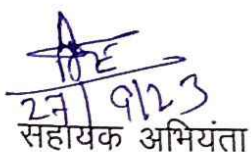 27/9/23
सहायक अभियंता